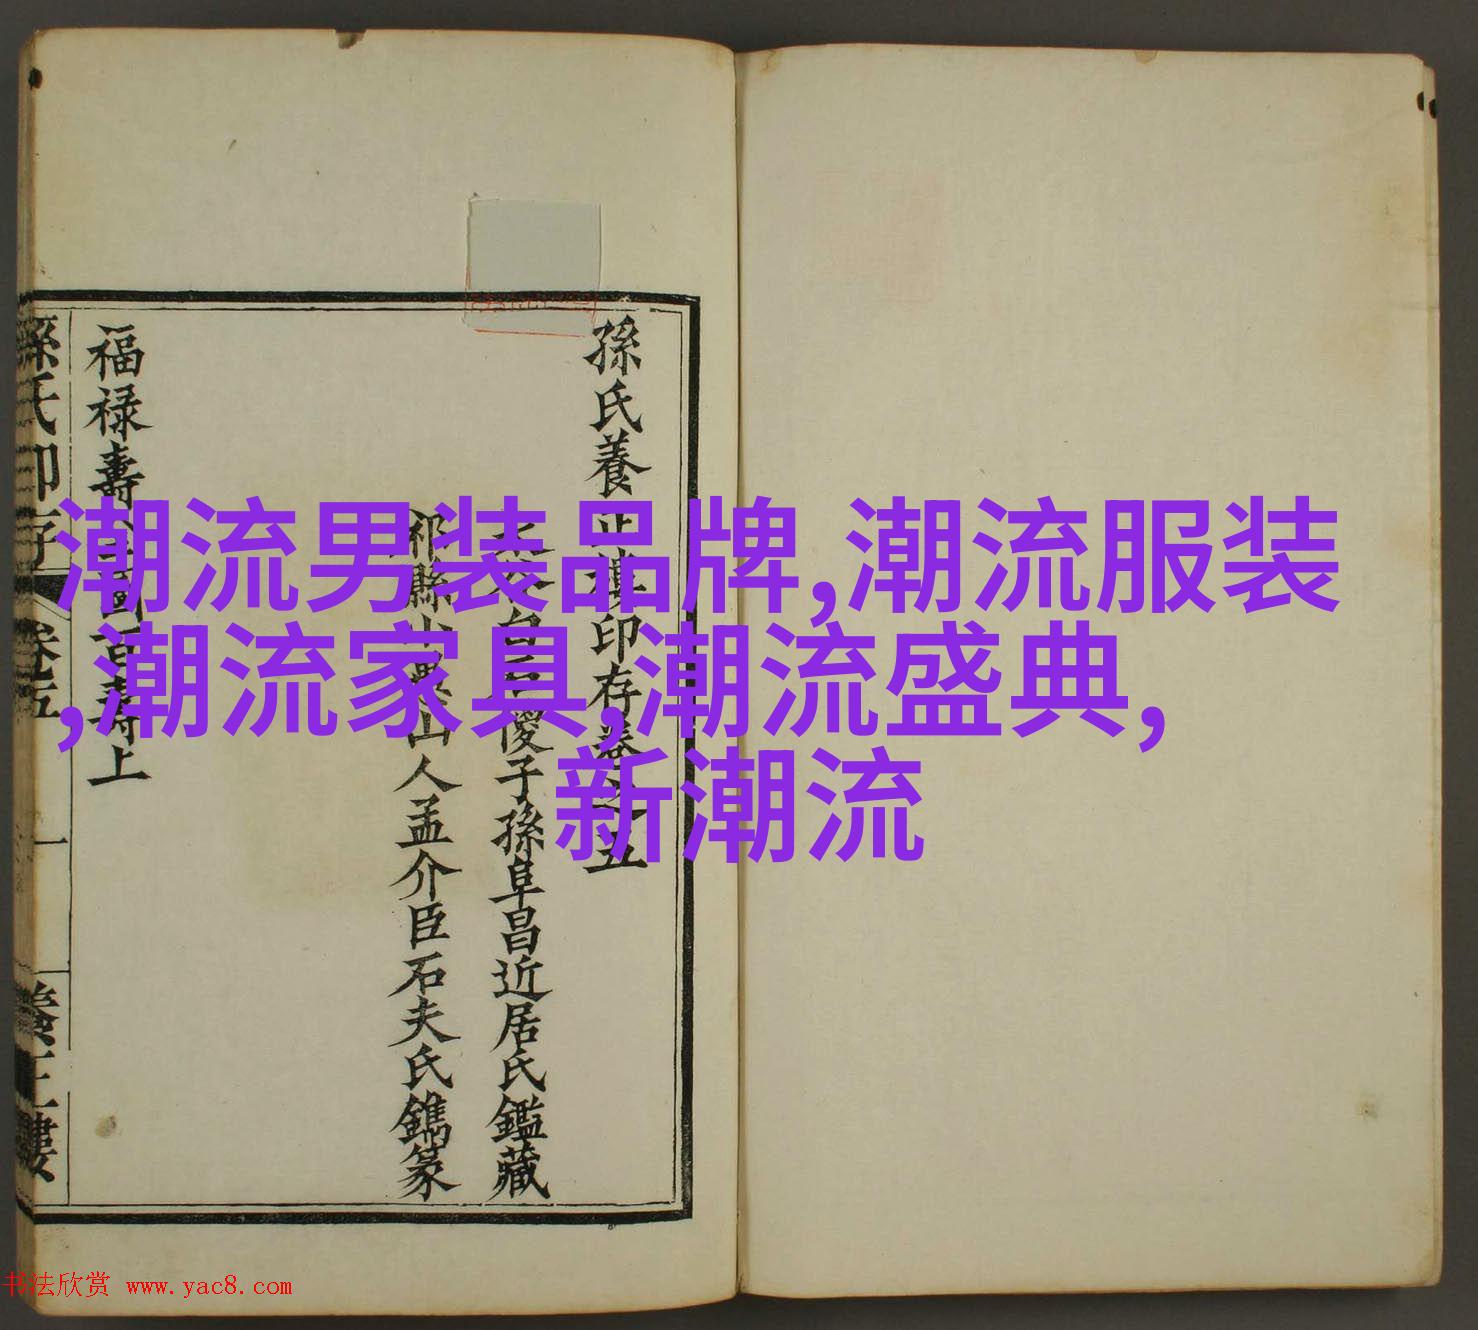 孫氏養正樓印存卷之五
孫阜昌近居氏鑑藏
山人孟介臣石夫氏鐫篆
福禄壽
百壽上
孫氏印存
卷五
一
養正樓
潮流男装品牌,潮流服装
,潮流家具,潮流盛典,
新潮流
书法欣赏 www.yac8.com